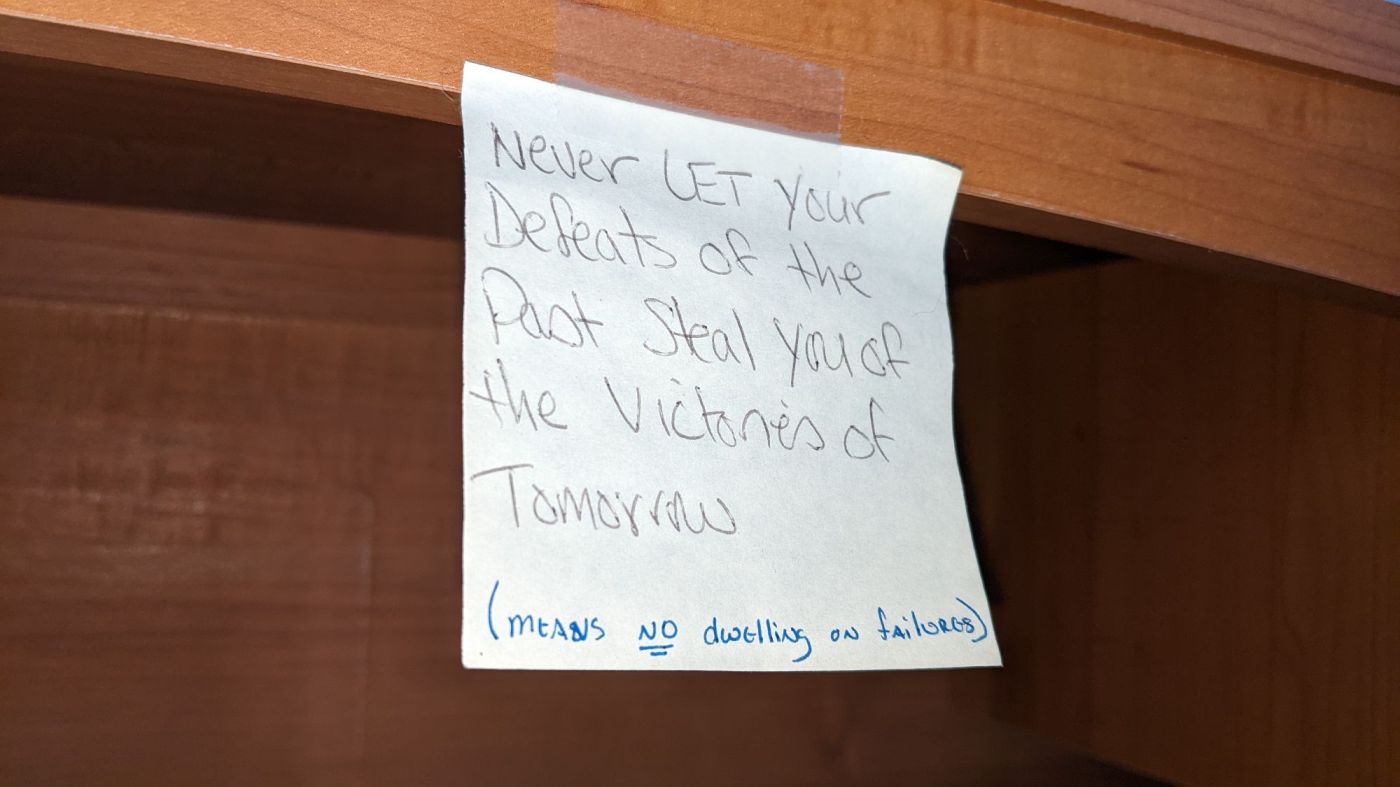 Never LET your
Defeats of the
Past Steal you of
the Victories of
Tomorrow
(MEANS NO dwElling ON fAilURES)